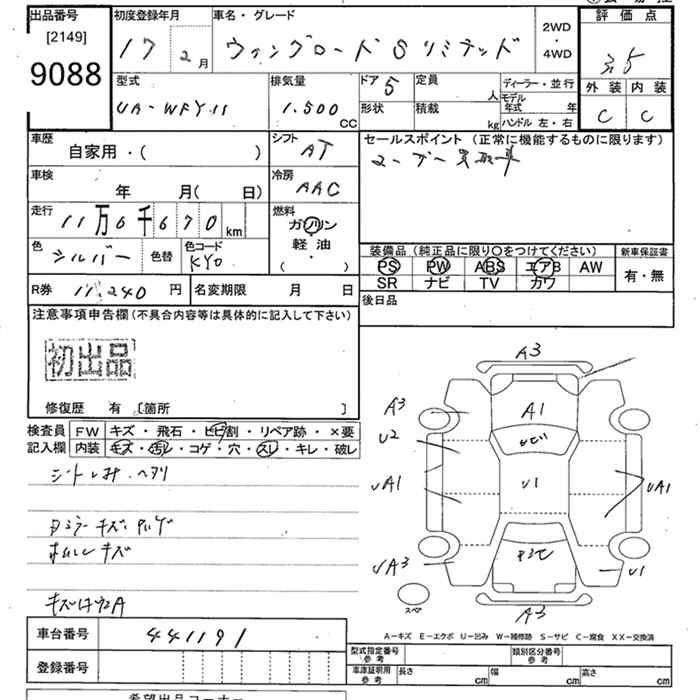 出品番号 初度登録年月 車名・グレード 評価点
[2149] 17年 2月 ウィングロード S リミテッド 2WD・4WD 3.5
9088
型式 排気量 ドア 5 定員 人 ディーラー・並行 外装 内装
UA-WFY11 1.500 CC 形状 積載 kg モデル年式 年 ハンドル 左・右 C C
車歴 シフト セールスポイント (正常に機能するものに限ります)
自家用・( ) AT
車検 冷房
年 月( 日) AAC
走行 燃料
11万6千670km ガソリン
軽油
・
( )
色 シルバー 色替 色コード KY0
装備品 (純正品に限り〇をつけてください) 新車保証書
PS PW ABS エアB AW 有・無
SR ナビ TV カワ
R券 11,240 円 名変期限 月 日 後日品
注意事項申告欄 (不具合内容等は具体的に記入して下さい)
初出品
修復歴 有 〔箇所 〕
検査員 FW キズ・飛石・ヒビ割・リペア跡・×要
記入欄 内装 キズ・汚れ・コゲ・穴・スレ・キレ・破レ
A3
A3 A1
U2
UA1 U1 UA1
UA3 U1
スペア
A3
車台番号 441191
登録番号
A－キズ E－エクボ U－凹み W－補修跡 S－サビ C－腐食 XX－交換済
型式指定番号 参考 類別区分番号 参考
車庫証明用 参考 長さ cm 幅 cm 高さ cm
希望出品コーナー